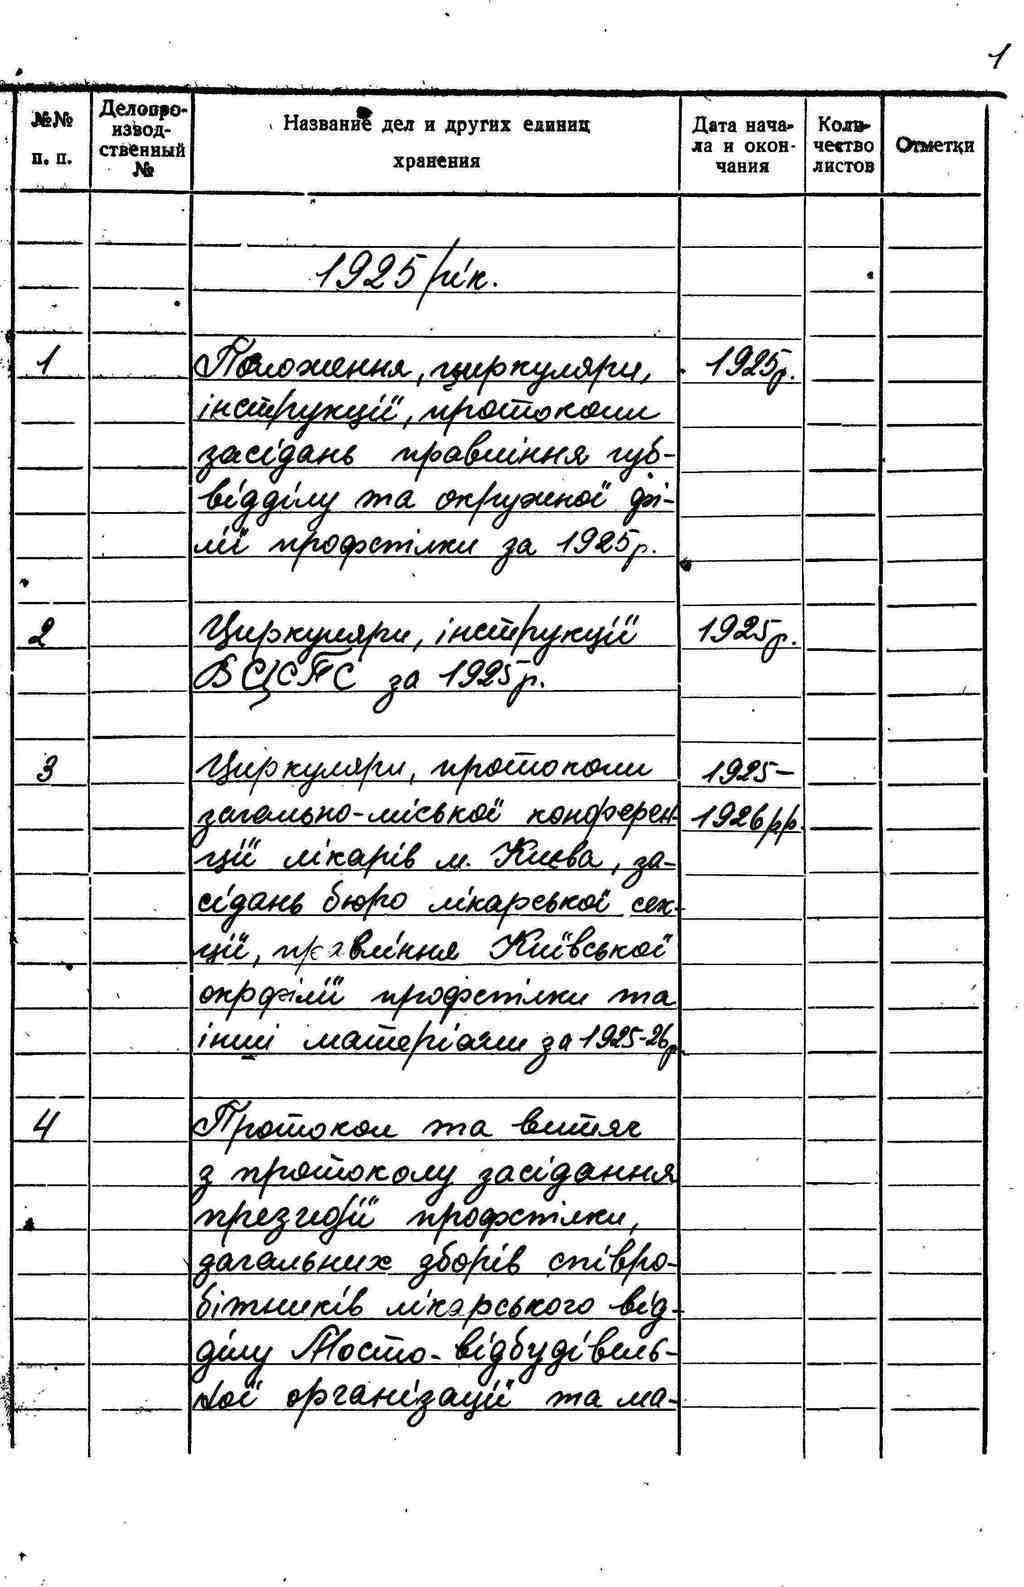 1
№№ п. п.
Делопроизводственный №
Название дел и других единиц хранения
Дата начала и окончания
Количество листов
Отметки
1925 рік.
1 Положення, циркуляри, 1925р.
інструкції, протоколи
засідань правління губ-
відділу та окружної фі-
лії профспілки за 1925р.
2 Циркуляри, інструкції 1925р.
ВЦСПС за 1925р.
3 Циркуляри, протоколи 1925-
загально-міської конферен- 1926рр.
ції лікарів м. Києва, за-
сідань бюро лікарської сек-
ції, правління Київської
окрфілії профспілки та
інші матеріали за 1925-26р
4 Протокол та витяг
з протоколу засідання
президії профспілки,
загальних зборів співро-
бітників лікарського від-
ділу Мосто-відбудівель-
ної організації та ма-